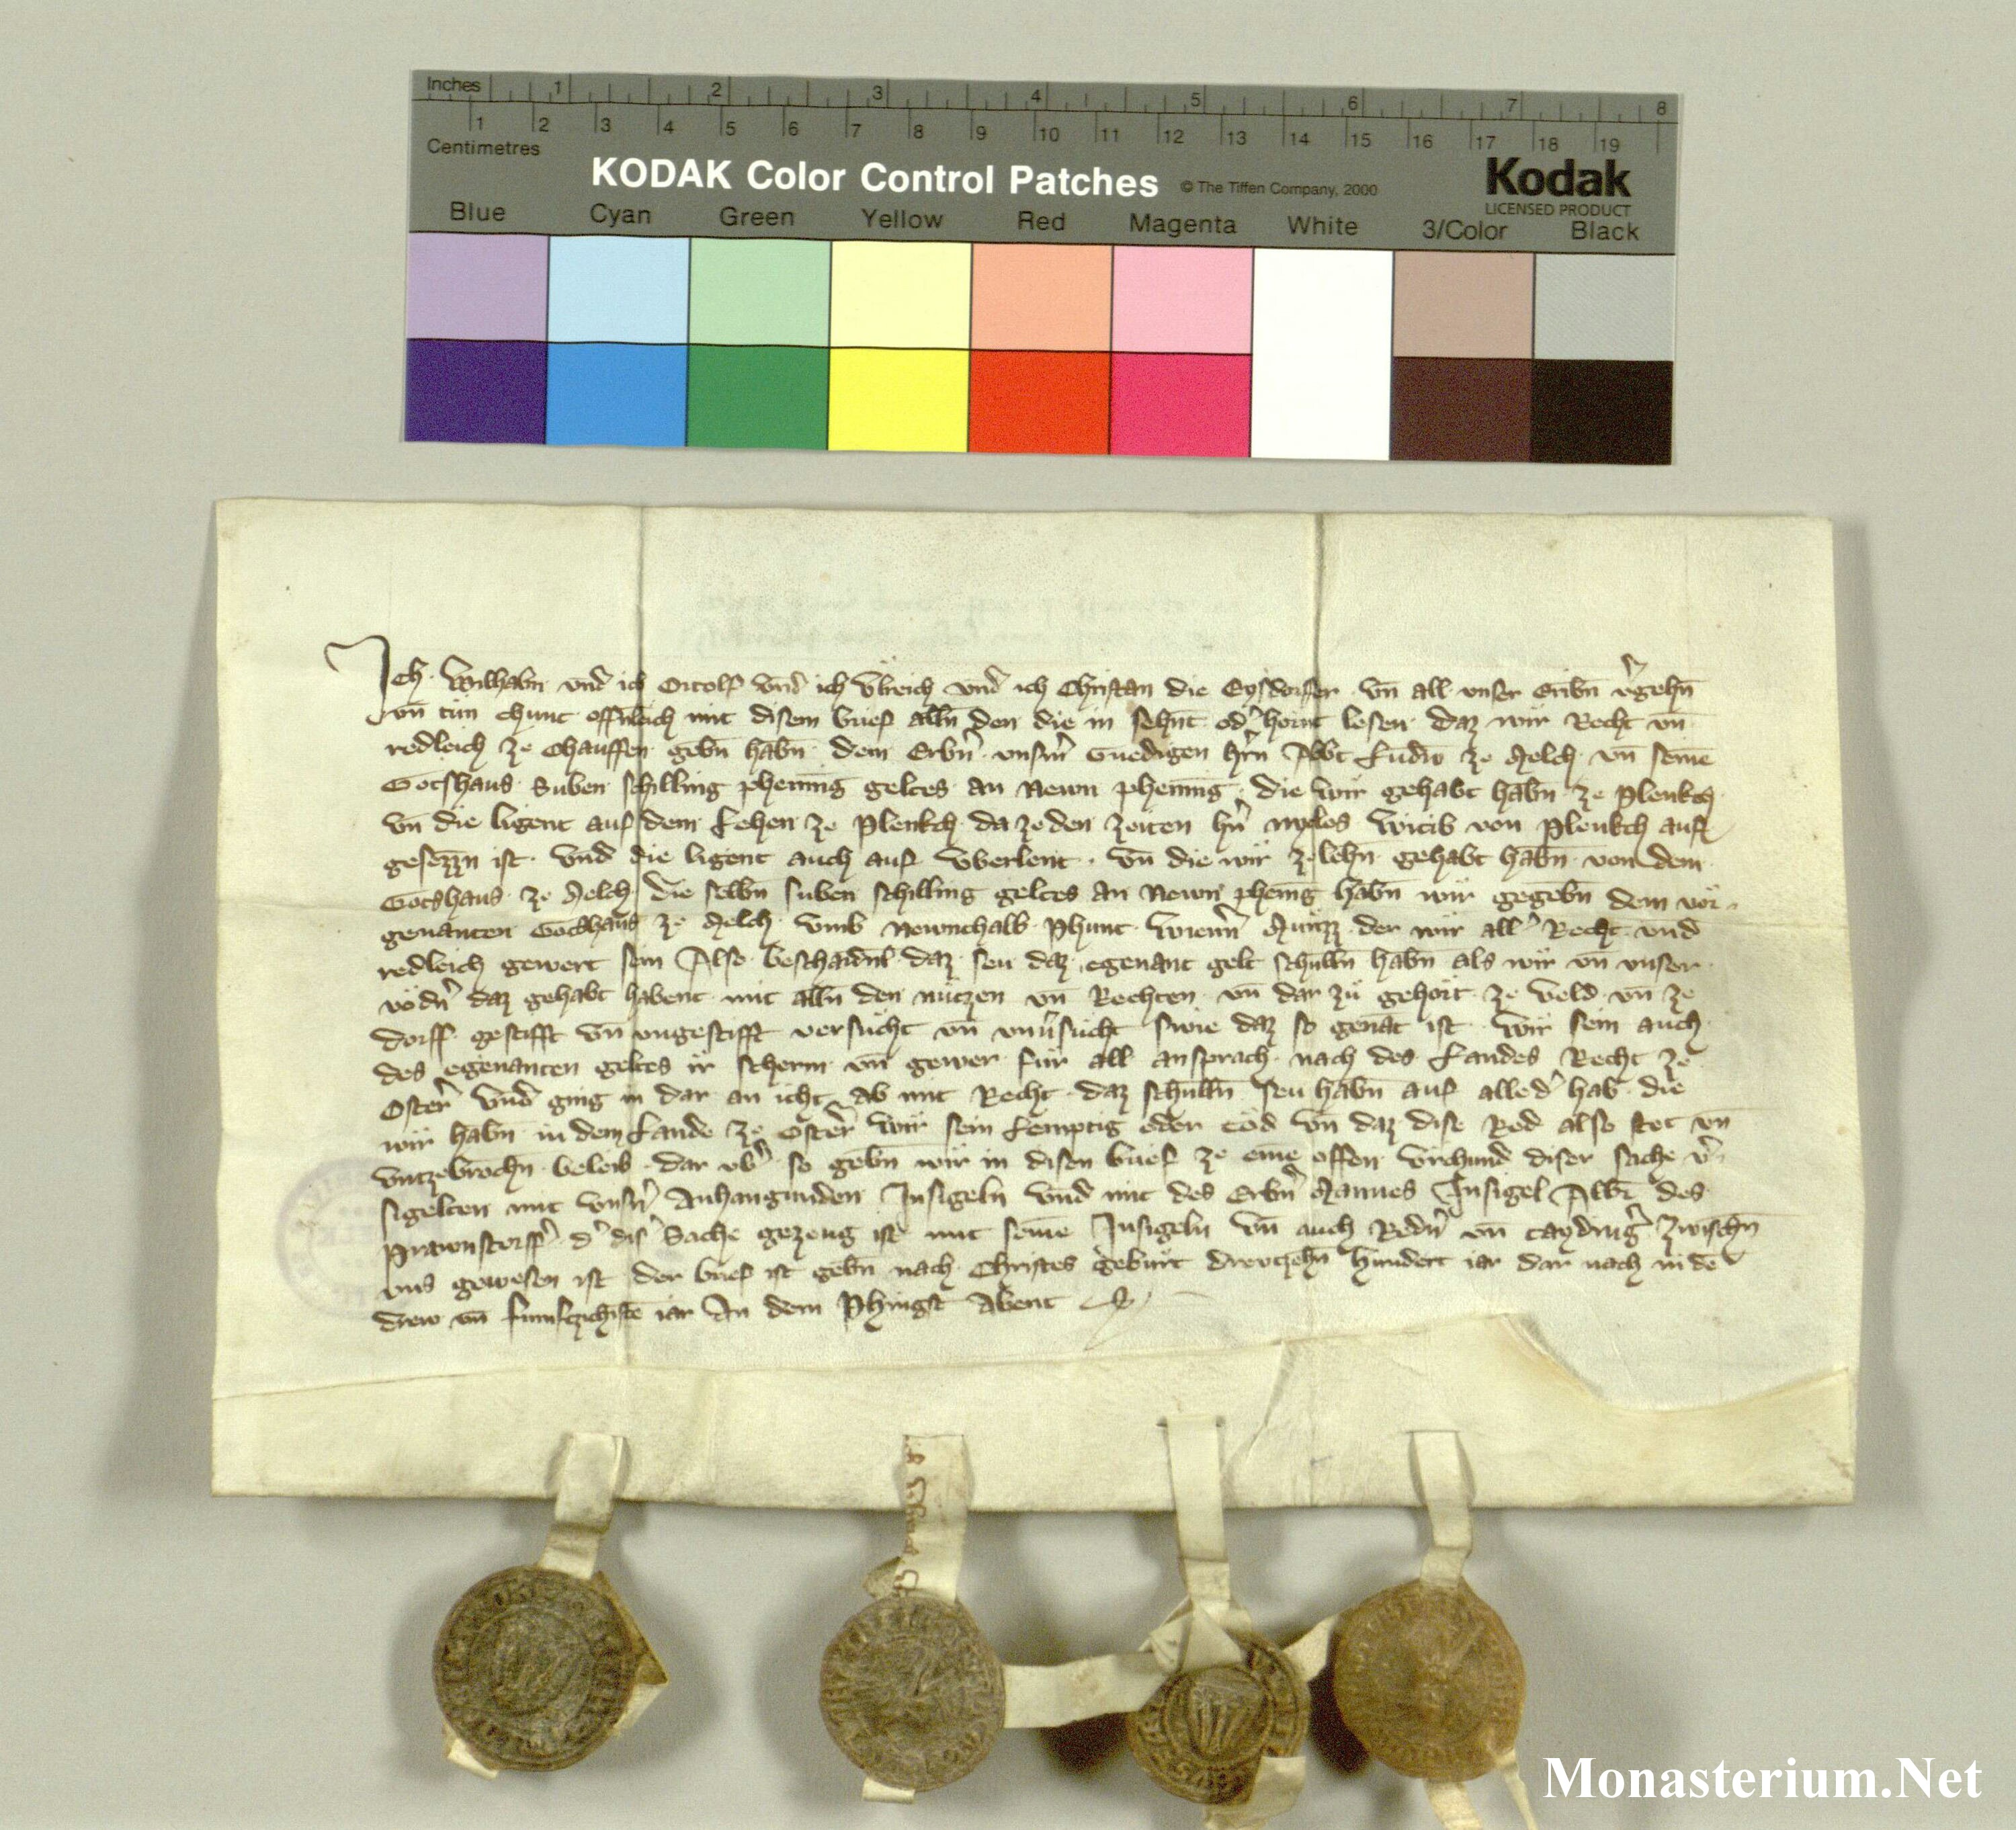 Inches 1 2 3 4 5 6 7 8
1 2 3 4 5 6 7 8 9 10 11 12 13 14 15 16 17 18 19
Centimetres
KODAK Color Control Patches © The Tiffen Company, 2000 Kodak
LICENSED PRODUCT
Blue Cyan Green Yellow Red Magenta White 3/Color Black
Ich Wilhalm vnd ich Ortolf vnd ich Vlreich vnd ich Christan die Eysdorffer vn̄ all vnser Eribn̄ v̾gehn̄
vn̄ tün chunt offnleich mit disem brief alln̄ den die in sehnt od̾ hörnt lesen daz wir Recht vn̄
redleich ze chauffen gebn̄ habn̄ dem Erbn̾ vnsm̾ Gnedigen hr̄n Abbt Ludw̄ ze Melch vn̄ seinē
Gotshaus Suben schilling phenning geltes an Newn phenning die wir gehabt habn̄ ze Plenkch
vn̄ die ligent auf dem Lehen ze Plenkch da ze den zeiten hn̾ Witib von Plenkch auf
gesezzn̄ ist vnd die ligent auch auf vberlent vn̄ die wir ze lehn̄ gehabt habn̄ von dem
Gotshaus ze Melch die selbn̄ suben schilling geltes an Newn phenīg habn̄ wir gegebn̄ dem vor
genanten Gotshaus ze Melch vmb Newnthalb Phunt Wienn̾ Münzz der wir all̾ Recht vnd
redleich gewert sein Also beschaidnl daz seu daz egenant gelt schulln̄ habn̄ als wir vn̄ vnser
vödn̾ daz gehabt habent mit alln̄ den nützen vn̄ Rechten vn̄ dar zü gehört ze veld vn̄ ze
dorff gestifft vn̄ vngestifft versücht vn̄ vnv̾sücht swie daz so genāt ist wir sein auch
des egenanten geltes ir scherm vn̄ gewer für all ansprach nach des Landes Recht ze
Oster̾ vnd ging in dar an icht ab mit Recht daz schulln̄ seu habn̄ auf alle d̾ hab die
wir habn̄ in dem Lande ze Oster̾ wir sein Lemptig oder töd vn̄ daz dise Red also stet vn̄
vntzebrochn̄ beleib dar vb̾ so gebn̄ wir in disen brief ze einē offen vrchund diser sache v̾
sigelten mit vnsn̾ Anhangunden Insigeln vnd mit des Erbn̾ Mannes Insigel Albr̄ des
d̾ dis̾ Sache gezeug ist mit seinē Insigeln vn̄ auch Redn̾ vn̄ taydrng̾ zwischn̄
vns gewesen ist der brief ist gebn̄ nach Christes gebürt drewtzehn̄ hundert iar dar nach in dē
drew vn̄ fumftzichistē iar An dem Phingst Abent
Monasterium.Net